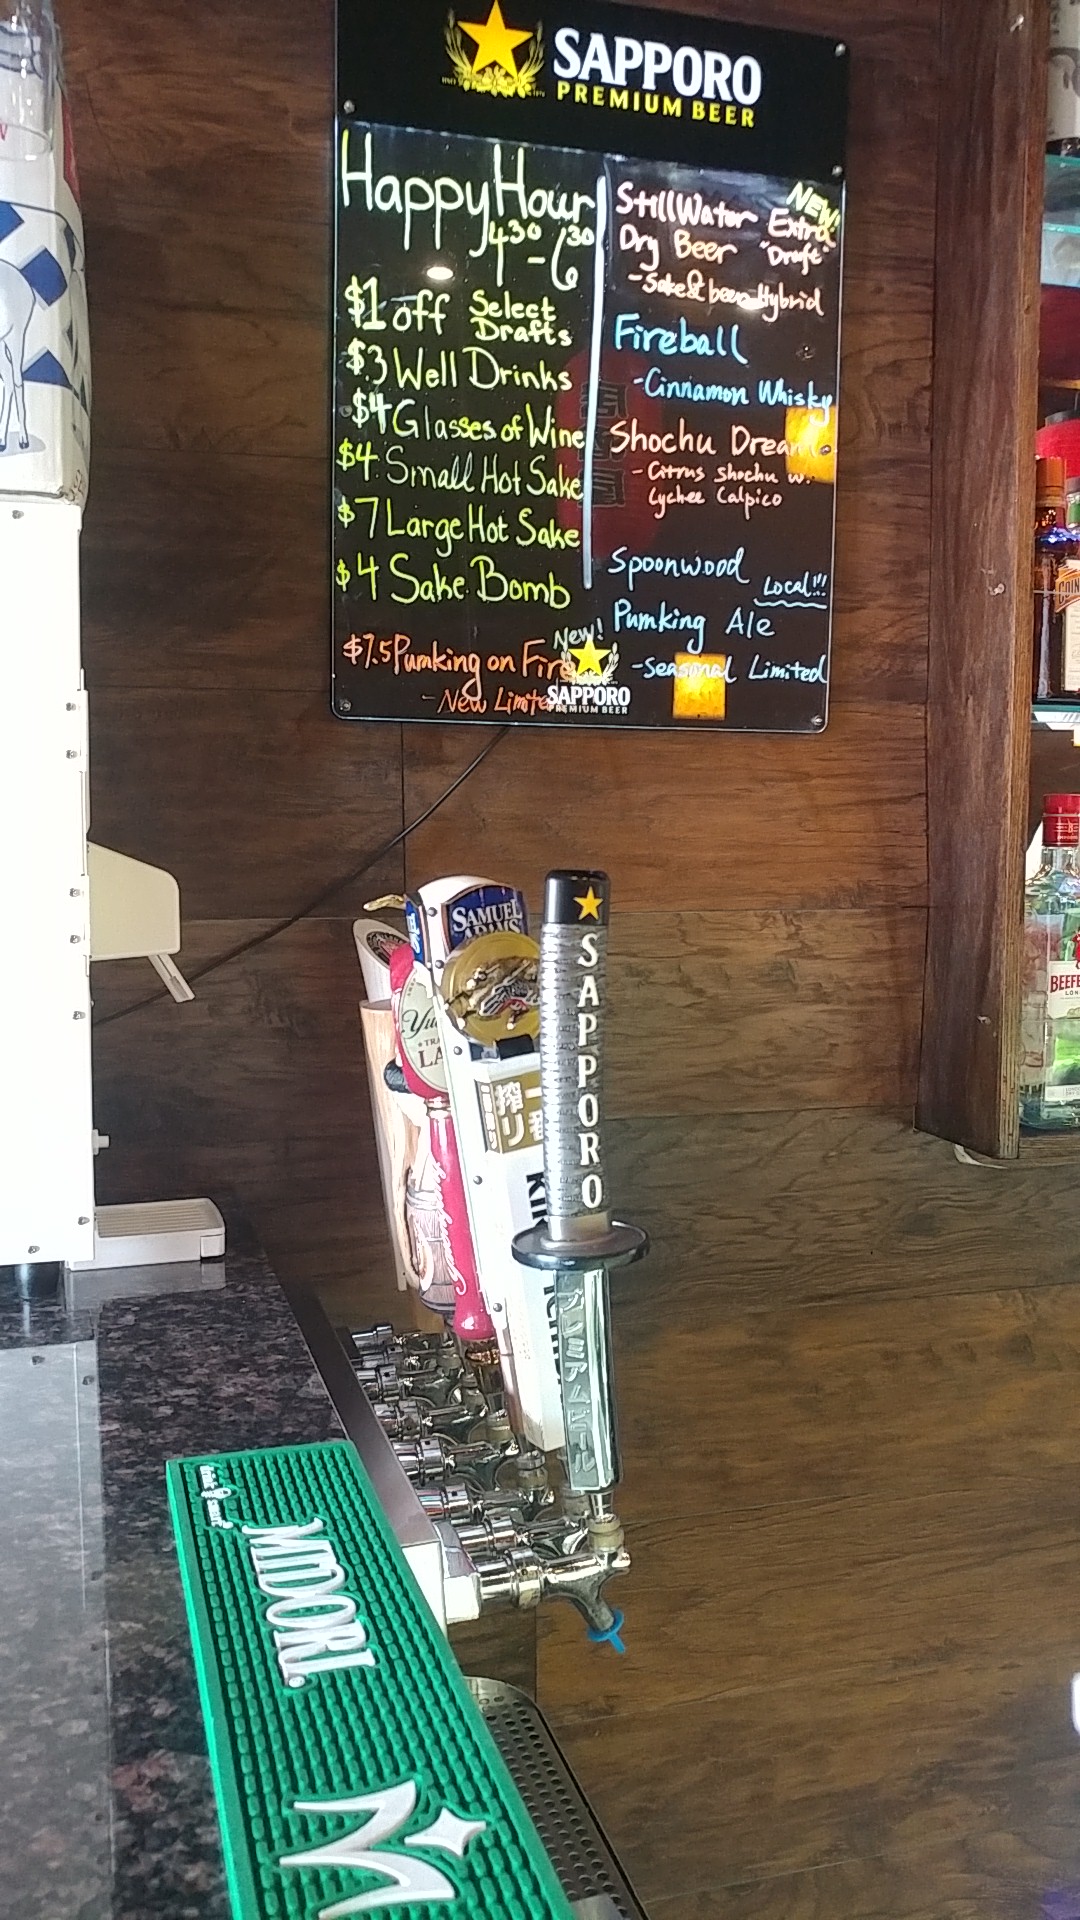 SAPPORO
PREMIUM BEER
Happy Hour
4:30 - 6:30
$1 off Select
Drafts
$3 Well Drinks
$4 Glasses of Wine
$4 Small Hot Sake
$7 Large Hot Sake
$4 Sake Bomb
New!
$7.5 Pumking on Fire
- New Limited
SAPPORO
PREMIUM BEER
NEW!
StillWater Extra
Dry Beer "Draft"
- Sake & beer Hybrid
Fireball
- Cinnamon Whisky
Shochu Dream
- Citrus Shochu w.
Lychee Calpico
Spoonwood
Local!!!
Pumking Ale
- Seasonal Limited
SAMUEL
ADAMS
SAPPORO
一番
搾り
プレミアムビール
BEEFE
LON
MIDORI
M